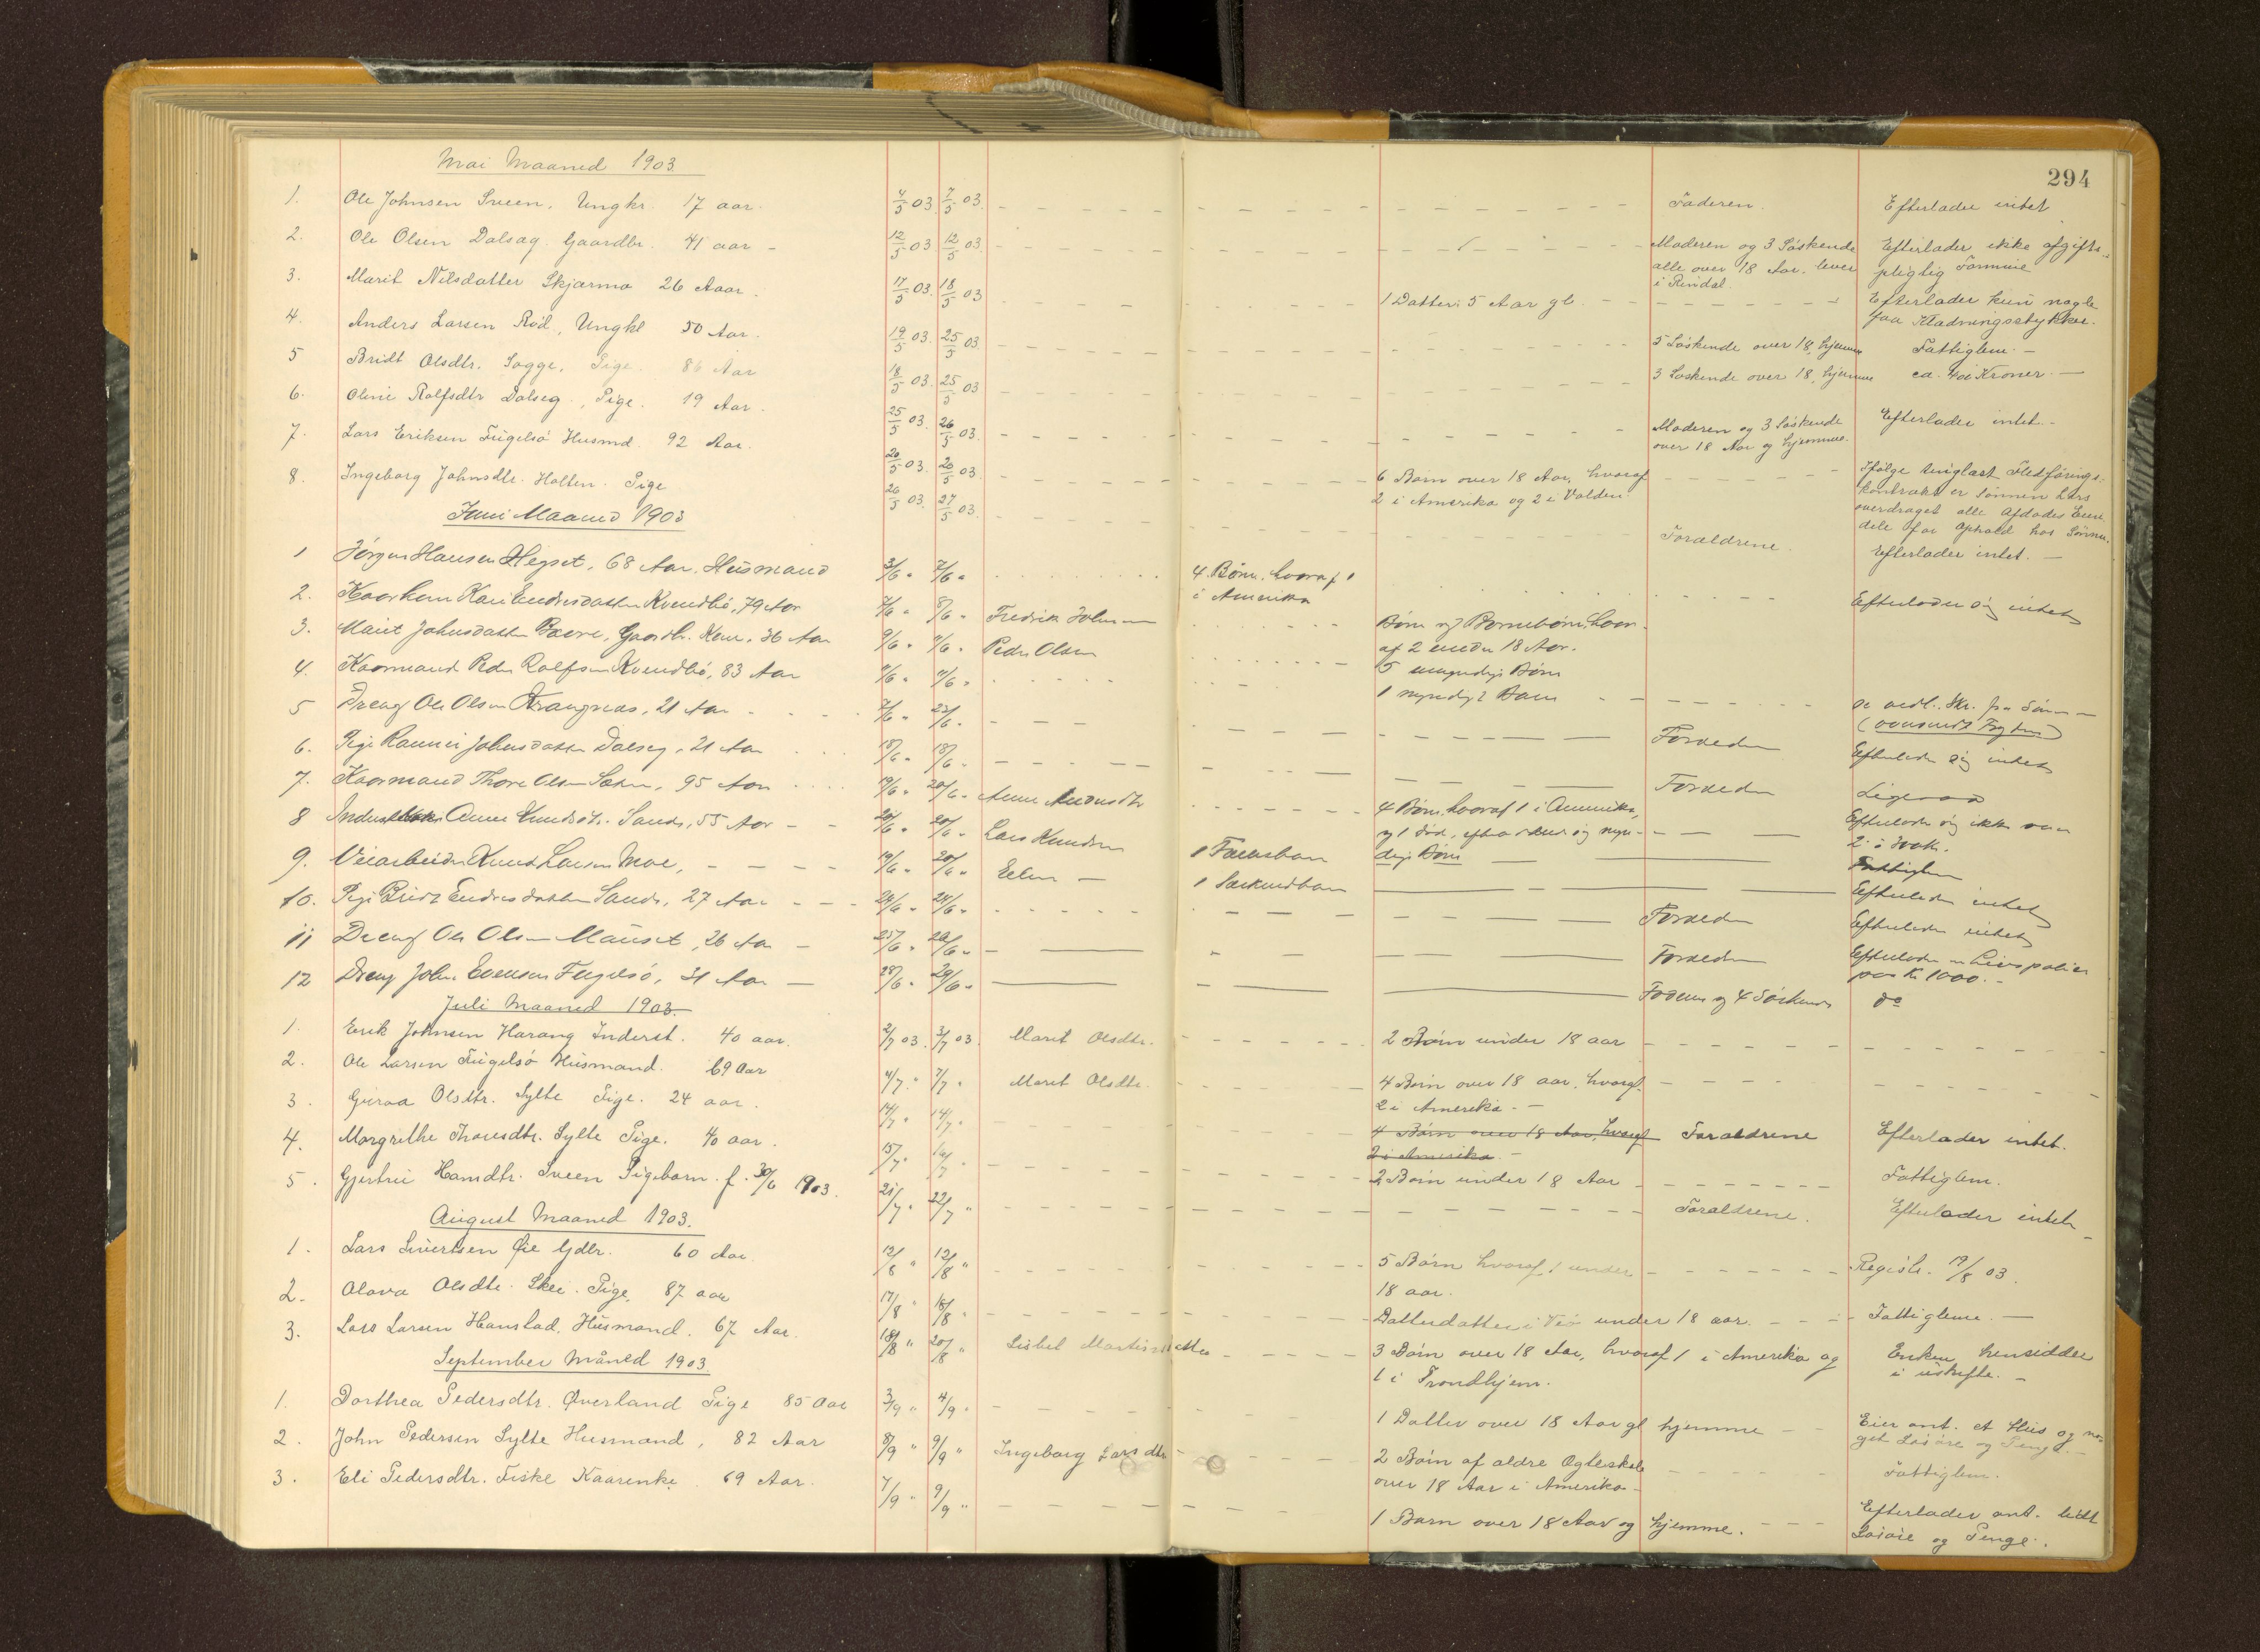 294
Mai Maaned 1903.
1. Ole Johnsen Sveen, Ungkr. 17 aar. 4/5 03. 7/5 03. Faderen. Efterlader intet
2. Ole Olsen Dalsæg. Gaardbr. 41 aar - 12/5 03 12/5 03. Moderen og 3 Søskende Efterlader ikke afgifts-
alle over 18 Aar. lever pligtig Formue
i Rindal.
3. Marit Nilsdatter Skjærmo 26 Aaar. 17/5 03. 18/5 03 1 Datter, 5 Aar gl. Efterlader kun nogle
faa Klædningsstykker.
4. Anders Larsen Rød, Ungkl 50 Aar. 19/5 03. 25/5 03 5 Søskende over 18, hjemme Fattiglem. -
5 Bridt Olsdtr. Sogge, Pige. 86 Aar 18/5 03. 25/5 03 3 Søskende over 18, hjemme ca. Kroner. -
6. Oline Rolfsdtr Dalseg., Pige. 19 Aar. 25/5 03. 26/5 03. Moderen og 3 Søskende Efterlader intet. -
over 18 Aar og hjemme.
7. Lars Eriksen Fugelsø Husmd. 92 Aar. 20/5 03. 20/5 03. 6 Børn over 18 Aar, hvoraf Ifølge tinglæst Fledførings-
2 i Amerika og 2 i Valden kontrakt er Sønnen Lars
overdraget alle Afdødes Eien-
dele for Ophold hos Sønnen.
8. Ingeborg Johnsdtr. Holten. Pige 26/5 03. 27/5 03. Forældrene. Efterlader intet. -
Juni Maaned 1903
1 Jørgen Hansen Hegset, 68 Aar. Husmand 3/6 " 7/6 " 4 Børn, hvoraf 1
i Amerika Efterlader sig intet
2. Kaarkone Kari Endresdatter Kvendbø, 79 Aar 7/6 " 8/6 " Fredrik Johnsen Børn og Børnebørn, hvor-
af 2 under 18 Aar.
3. Marit Johnsdatter Bævre, Gaardbr. Kone, 36 Aar 9/6 " 9/6 " Peder Olsen 5 umyndige Børn
4. Kaarmand Peder Rolfsen Kvendbø, 83 Aar 11/6 " 11/6 " 1 myndigt Barn se vedl. Skr. fra Søn -
5 Dreng Ole Olsen Krangnæs, 21 Aar 7/6 " 23/6 " Forældre Efterlader sig intet
6. Pige Rannei Johnsdatter Dalseg, 21 Aar 18/6 " 18/6 " Forældre Ligesaa
7. Kaarmand Thore Olsen Sæter, 95 Aar 19/6 " 20/6 " Anne Andersdtr 4 Børn, hvoraf 1 i Amerika, Efterlader sig ikke
og 1 død, efterladende sig myn-
dige Børn
8 Inderst Anne Knudsdtr. Sande, 55 Aar 20/6 " 20/6 " Lars Knudsen 1 Fællesbarn Fattiglem
9. Veiarbeider Knud Larsen Moe, 19/6 " 20/6 " Elen - 1 Særkuldbarn Efterlader intet
10. Pige Bridt Endresdatter Sande, 27 Aar 24/6 " 24/6 " Forældre Efterlader intet
11 Dreng Ole Olsen Mauset, 26 Aar - 25/6 " 26/6 " Forældre Efterlader en Livspolice
paa Kr. 1000. -
12 Dreng John Evensen Fugelsø, 31 Aar - 28/6 " 29/6 " Foreldre og 4 Søskende do
Juli Maaned 1903.
1. Erik Johnsen Harang Inderst. 40 aar. 2/7 03. 3/7 03. Marit Olsdtr. 2 Børn under 18 aar
2. Ole Larsen Fugelsø Husmand. 69 Aar 4/7. " 7/7 " Marit Olsdtr. 4 Børn over 18 aar, hvoraf
2 i Amerika. -
3. Guroa Olsdtr. Sylte Pige. 24 aar. 14/7 " 14/7 " 4 Børn over 18 Aar, hvoraf Forældrene Efterlader intet.
2 i Amerika. -
4. Margrethe Thoresdtr. Sylte Pige. 40 aar. 15/7 " 16/7 " 2 Børn under 18 Aar Fattiglem.
5. Gjertrui Hansdtr. Sveen Pigebarn. f. 30/6 1903. 21/7 " 22/7 " Forældrene. Efterlader intet
August Maaned 1903.
1. Lars Sivertsen Øie Gdbr. 60 Aar 12/8 " 12/8 " 5 Børn hvoraf 1 under Registr. 19/8 03.
18 aar.
2. Olava Olsdtr. Skei. Pige, 87 aar 17/8 " 18/8 " Datterdatter i under 18 aar. Fattiglem. -
3. Lars Larsen Hanstad, Husmand. 67 Aar. 18/8 " 20/8 " Lisbet Martinsdatter 3 Børn over 18 Aar, hvoraf 1 i Amerika og Enken hensidder
1 i Trondhjem. i uskifte. -
September Måned 1903
1. Dorthea Pedersdtr. Øverland Pige 85 Aar 3/9 " 4/9 " 1 Datter over 18 Aar gl hjemme Eier ant. et Hus og no-
get Løsøre og Penge. -
2. John Pedersen Sylte Husmand, 82 Aar 8/9 " 9/9 " Ingeborg Larsdtr 2 Børn af ældre Ægteskab Fattiglem.
over 18 Aar i Amerika
3. Eli Pedersdtr. Fiske Kaarenke 69 Aar. 7/9 " 9/9 " 1 Barn over 18 Aar og hjemme. Efterlader ant. lidt
Løsøre og Penge.